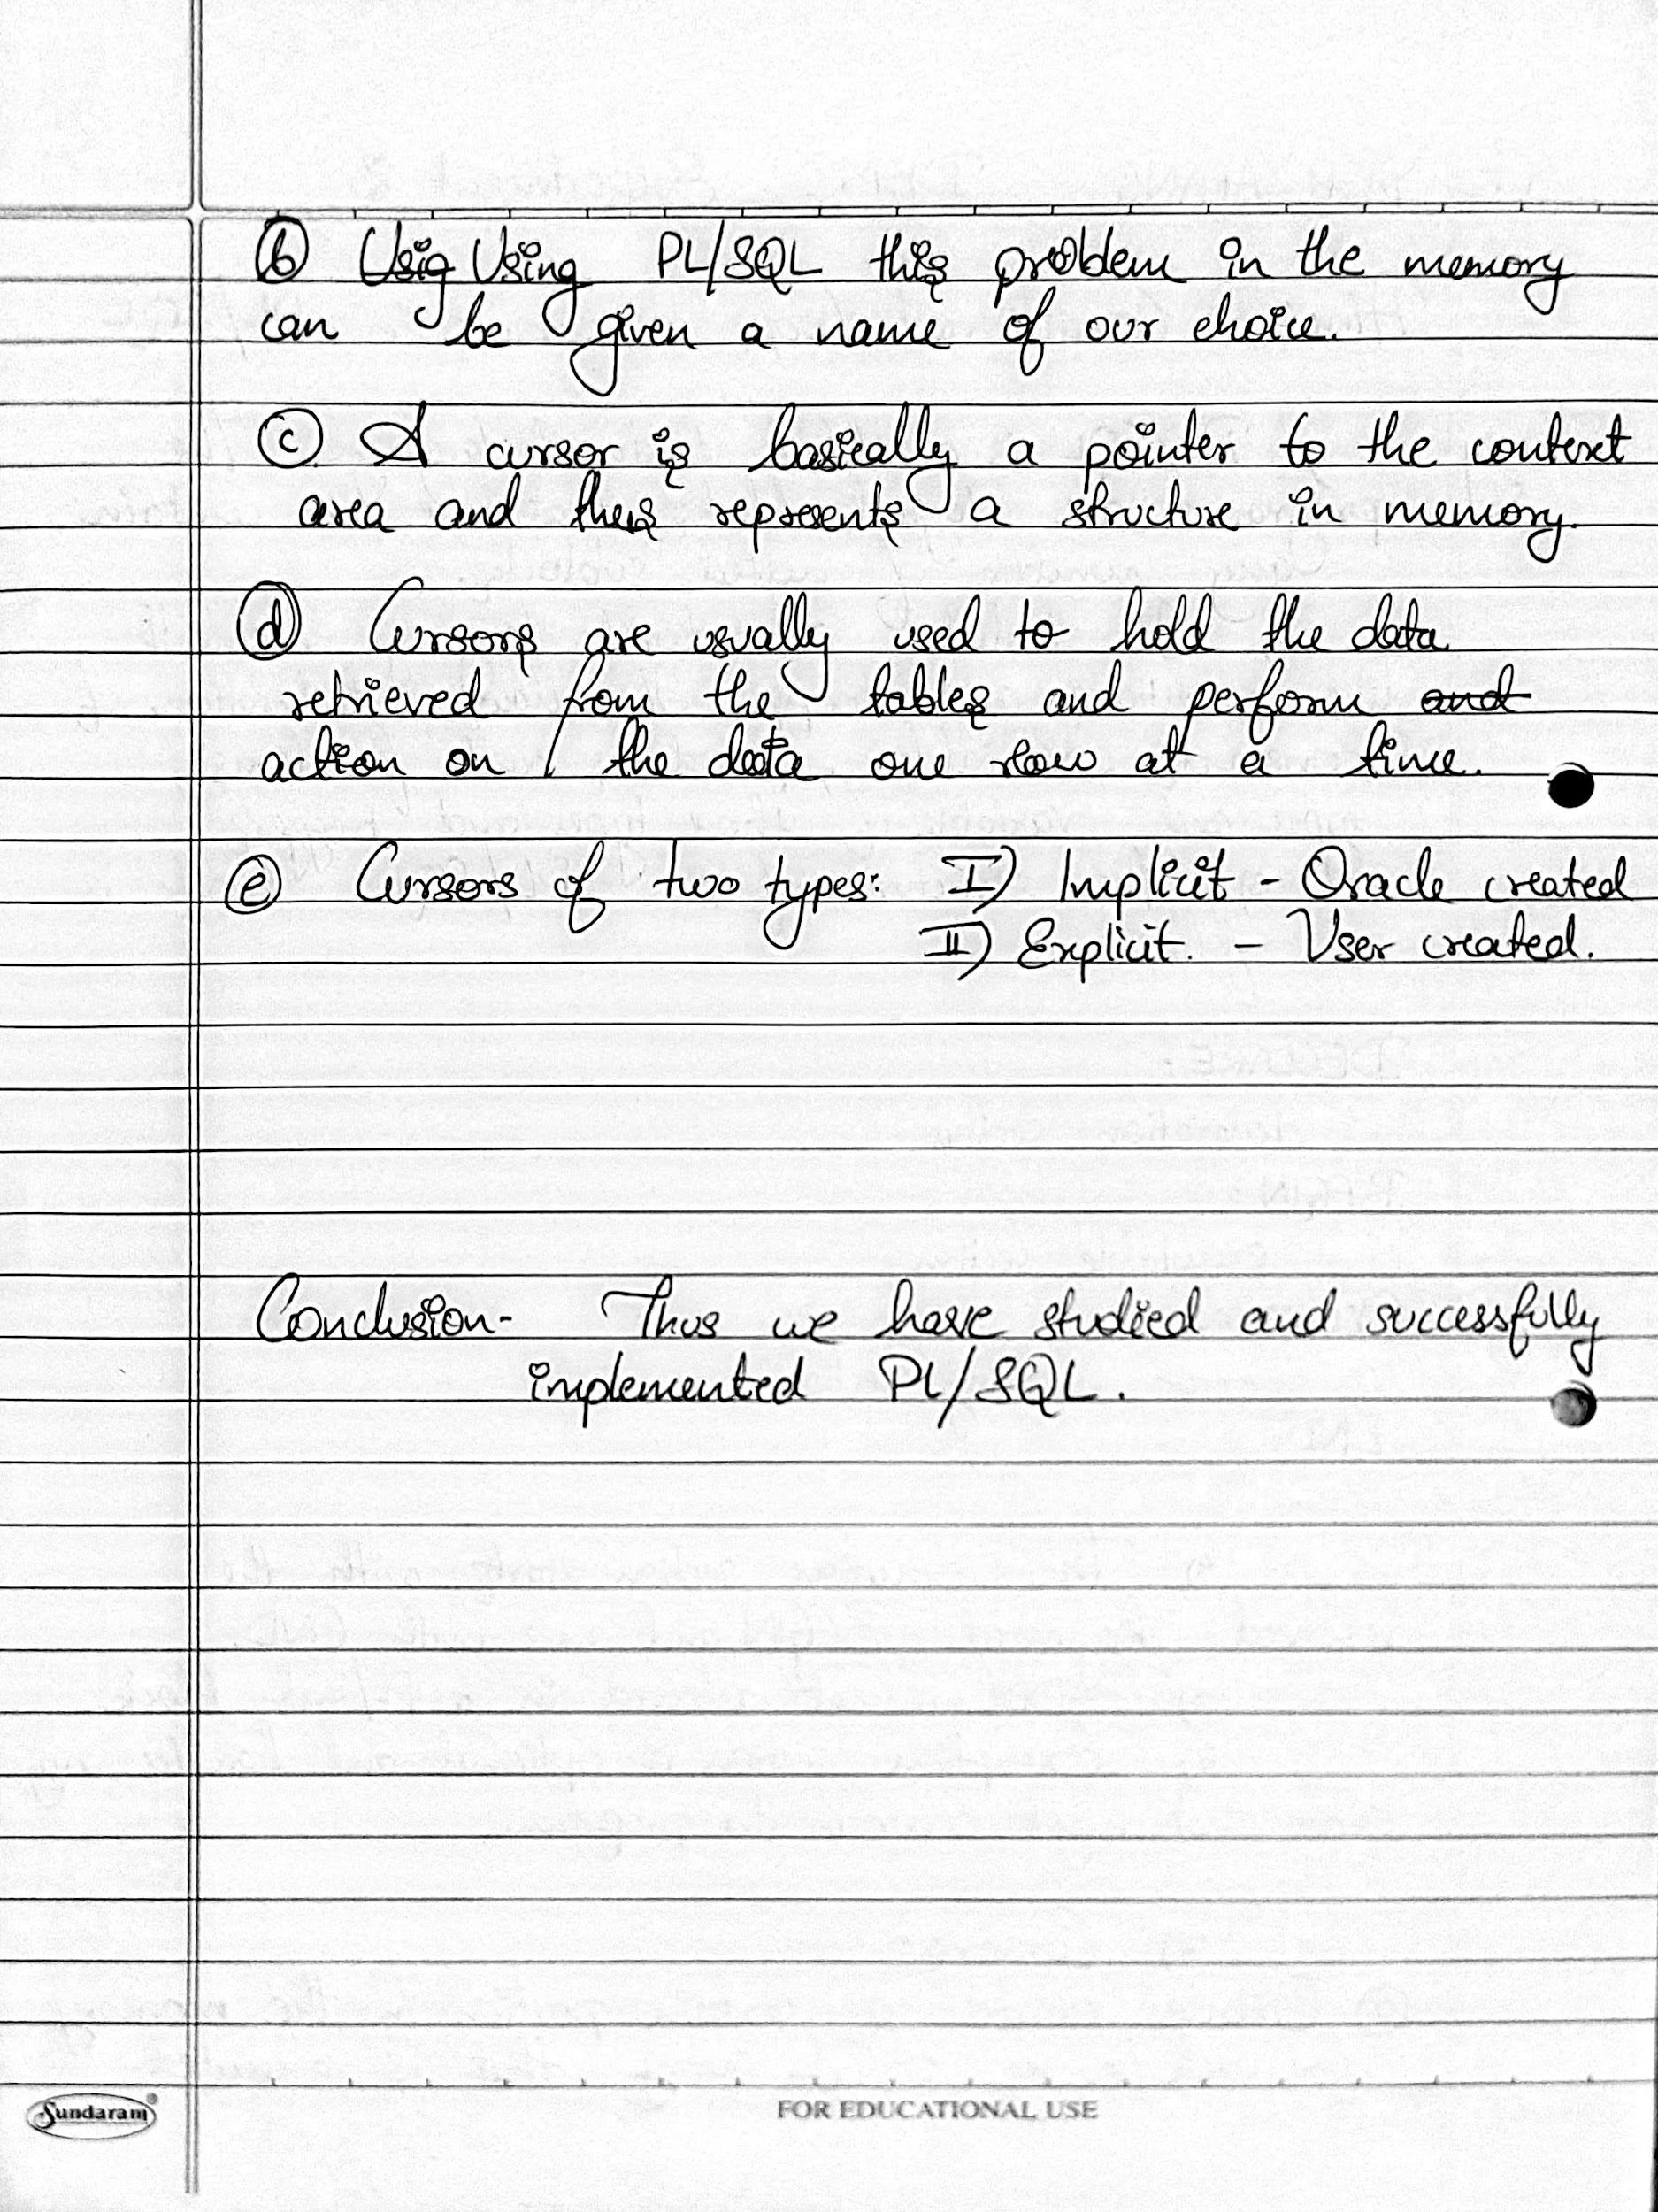 ⓑ Usig Using PL/SQL this problem in the memory
can be given a name of our choice.
ⓒ A cursor is basically a pointer to the context
area and thus represents a structure in memory.
ⓓ Cursors are usually used to hold the data
retrieved from the tables and perform and
action on the data one row at a time.
ⓔ Cursors of two types: I) Implicit - Oracle created
II) Explicit. - User created.
Conclusion- Thus we have studied and successfully
implemented PL/SQL.
Sundaram®
FOR EDUCATIONAL USE